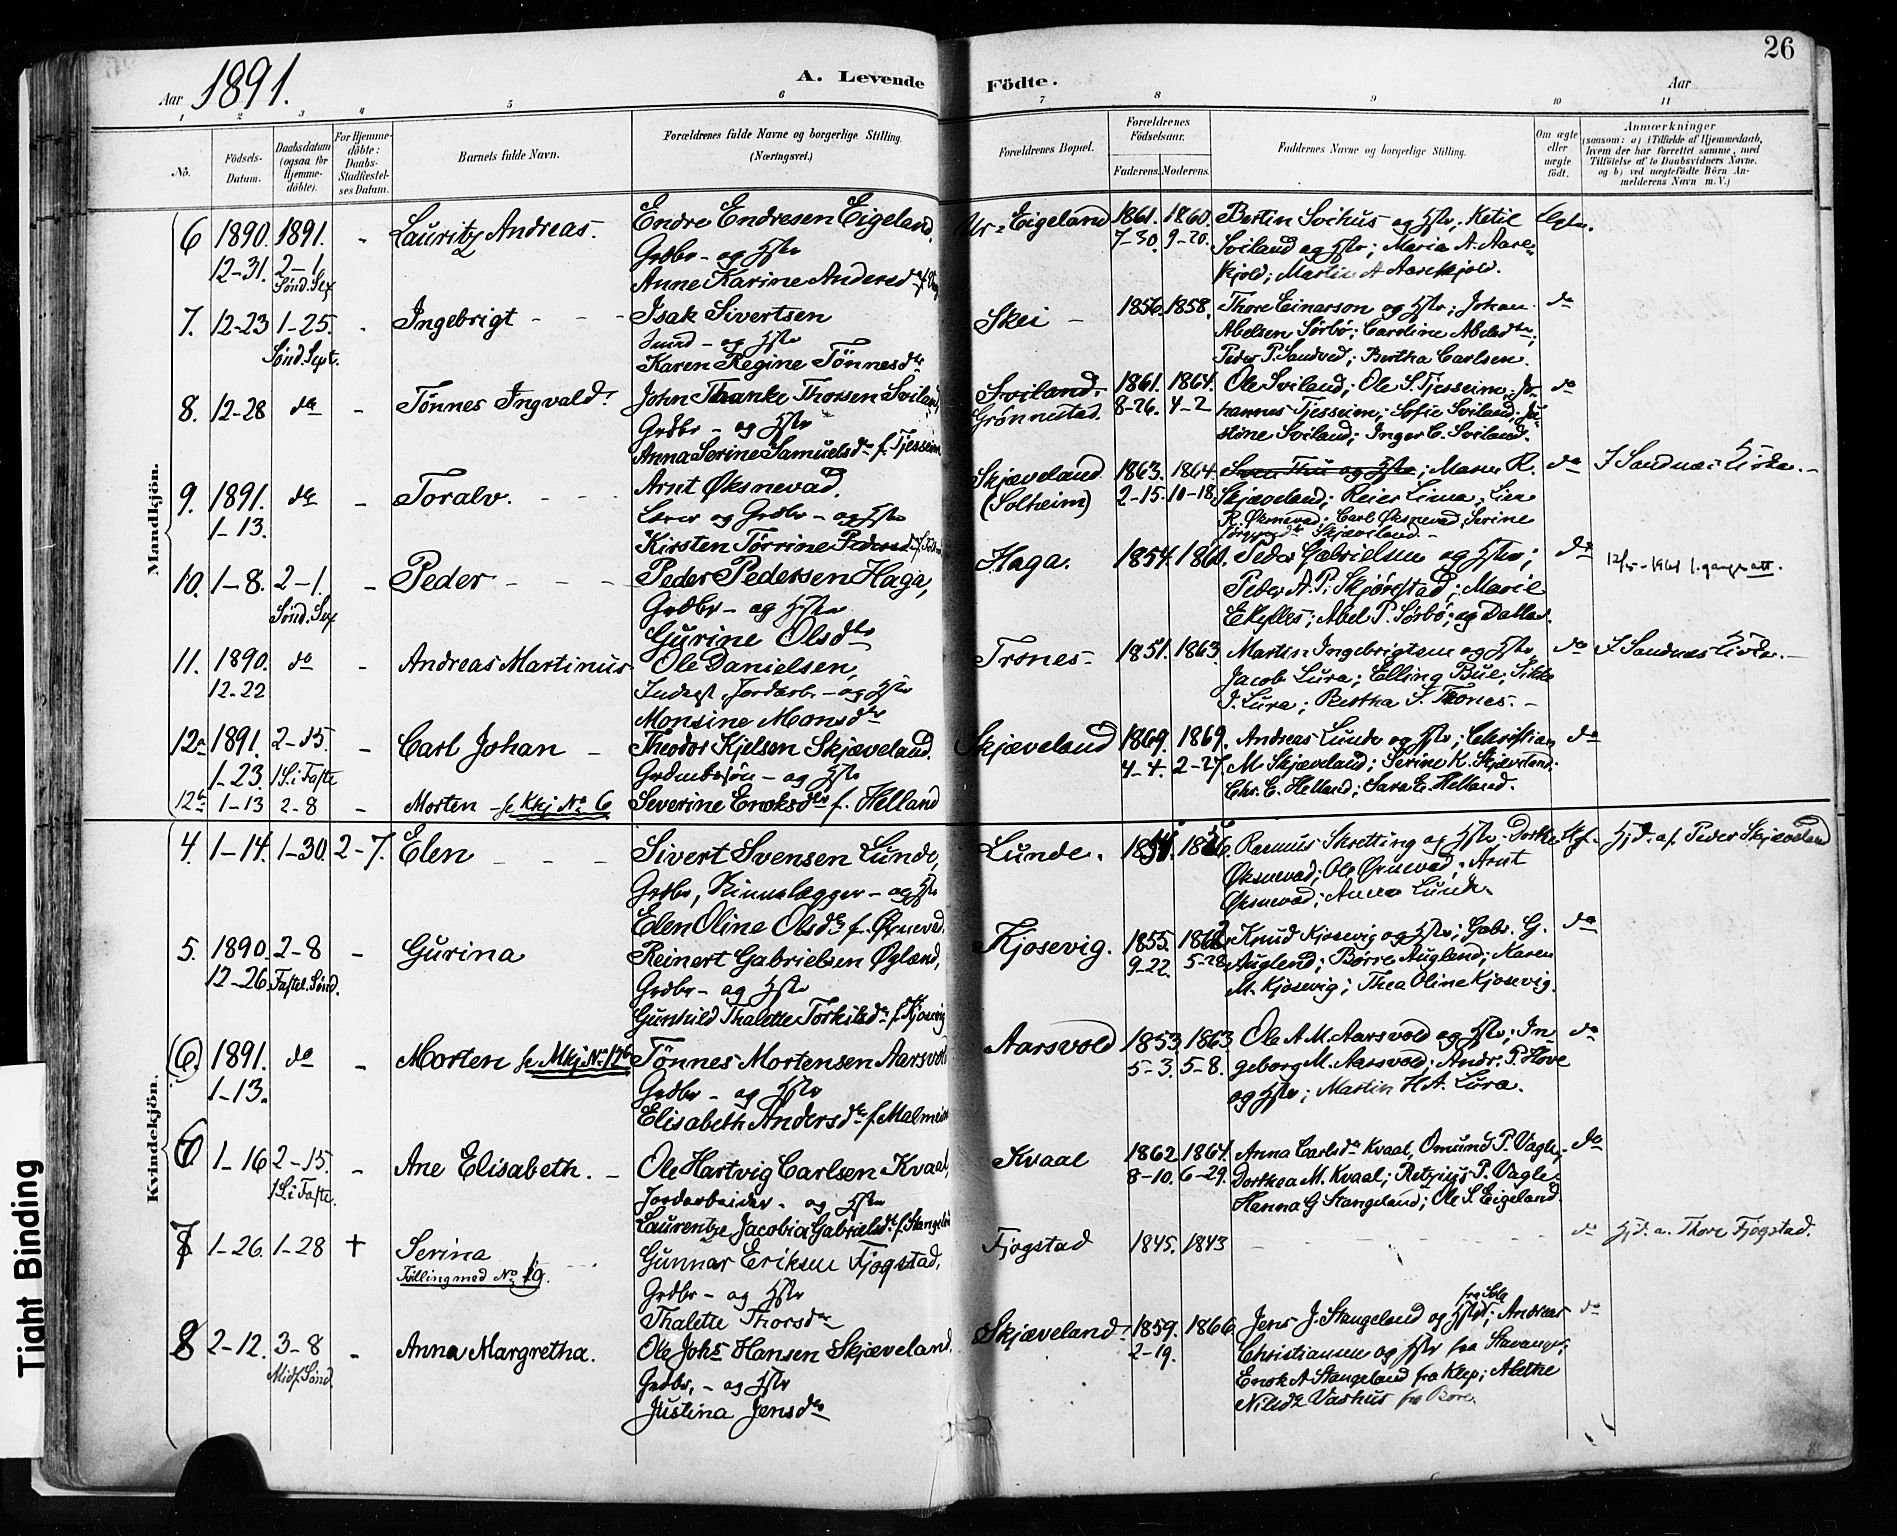 26
Aar 1891.
A. Levende Fødte.
Aar
1 2 3 4 5 6 7 8 9 10 11
No.
Fødsels-Datum.
Daabsdatum (ogsaa for Hjemmedøbte).
For Hjemmedøbte: Daabs-Stadfæstelses Datum.
Barnets fulde Navn.
Forældrenes fulde Navne og borgerlige Stilling. (Næringsvei.)
Forældrenes Bopæl.
Forældrenes Fødselsaar.
Faderens. Moderens.
Faddernes Navne og borgerlige Stilling.
Om ægte eller uægte født.
Anmærkninger
(saasom: a) i Tilfælde af Hjemmedaab, hvem der har forrettet samme, med Tilføielse af to Daabsvidners Navne. og b) ved uægtefødte Børn Anmelderens Navn m. V.)
Mandkjøn.
6 1890. 1891. - Lauritz Andreas. Endre Endresen Eigeland, Eigeland 1861. 1860. Bertin Svihus og Hstr; Ketil Ægte.
12-31. 2-1. Grdbr - og Hstr 7-30. 9-20. Sviland og Hstr; Maria A. Aare-
Sønd. Sex Anne Karine Andersd skjold; Martin A Aareskjold.
7. 12-23 1-25. - Ingebrigt - - - Isak Sivertsen Skei - 1856. 1858. Thore Einarson og Hstr; Johan do
Sønd. Sept. Smed - og Hstr Abelsen Sørbø; Caroline Abelsdtr;
Karen Regine Tønnesdtr Peder P. Sandved; Bertha Carlsen.
8. 12-28 do - Tønnes Ingvald. John Thorsen Sviland Sviland. 1861. 1864. Ole Sviland; Ole S. Tjesseim; Jo- do
Grdbr - og Hstr Grønnestad. 8-26. 4-2 hannes Tjesseim; Sofie Sviland; Ju-
Anna Serine Samuelsdr f. Tjesseim stine Sviland; Inger C. Sviland.
9. 1891. do - Toralv. - - - Arnt Øksnevad. Skjæveland 1863. 1864. Maren R. do I Sandnæs Kirke. -
1-13. Lærer og Grdbr - og Hstr (Solheim) 2-15. 10-18. Skjæveland; Reier Lima;
Kirsten Tørrine Pedersd R. Øksnevad; Carl Øksnevad, Serine
Skjæveland. -
10. 1-8. 2-1. - Peder - - - Peder Pedersen Haga, Haga. 1854. Peder Gabrielsen og Hstr; do
Sønd. Sex Grdbr - og Hstr Peder A. P. Skjørestad;
Gurine Olsdtr Abel P. Sørbø;
11. 1890. do - Andreas Martinus Ole Danielsen, Trones - 1851. 1863. Martin Ingebrigtsen og Hstr, do I Sandnæs Kirke. -
12-22 Inderst, Jordarb. - og Hstr Jacob Lura; Elling Bue; Sikke
Monsine Monsdtr J. Lura; Bertha S. Trones. -
12a 1891. 2-15. - Carl Johan - Theodor Kjelsen Skjæveland. Skjæveland 1869. 1869. Andreas Lunde og Hstr; Christian do
1-23. 1 S. i Faste - og Hstr 4-4. 2-27. M Skjæveland; Serine K. Skjæveland.
12b 1-13 2-8 - Morten - se Kkj No 6 Severine Enoksdtr f. Helland Chr. E. Helland; Sara E. Helland.
Kvindekjøn.
4. 1-14. 1-30. 2-7. Elen - - - Sivert Svensen Lunde, Lunde. Rasmus Skretting og Hstr. Dorthe Hjd. af. Peder Skjæveland
Grdbr, - og Hstr Øksnevad; Ole Øksnevad; Arnt
Elen Oline Olsdtr f. Øksnevad. Øksnevad; Anna Lunde.
5. 1890. 2-8 - Gurina Reinert Gabrielsen Øglænd, Kjosevig. 1855. Knud Kjosevig og Hstr; Gabr. G. do
12-26. Fastel. Sønd. Grdbr - og Hstr 9-22. 5-28. Auglend; Børre Auglend; Karen
Gunhild Thalette Torkildsdr f. Kjosevig M. Kjosevig; Thea Oline Kjosevig.
(6). 1891. do - Morten se Mkj. No 12b Tønnes Mortensen Aarsvold Aarsvold 1853. 1863 Ole A M. Aarsvold og Hstr; In- do
1-13. Grdbr - og Hstr 5-3. 5-8. geborg M. Aarsvold; Andr. P. Hove
Elisabeth Andersdtr f. Malmeim og Hstr; Martin H A. Lura.
6 1-16 2-15. - Ane Elisabeth. - Ole Hartvig Carlsen Kvaal, Kvaal 1862 1864. Anna Carlsdr Kvaal, Omund P. Vagle, do
1 S. i Faste. Jordarbeider - og Hstr 8-10. 6-29. Dorthea M. Kvaal; P. Vagle;
Laurentze Jacobia Gabrielsdr f. Stangeland Hanna G Stangeland; Ole S. Eigeland.
7 1-26. 1-28 † Serina Gunnar Eriksen Fjogstad, Fjogstad 1845. 1843 - - - do Hjd. a. Thore Fjogstad.
Tvilling med No 19. Grdbr - og Hstr
Thalette Thorsdtr
8 2-12. 3-8 - Anna Margretha. Ole Johs Hansen Skjæveland. Skjæveland. 1859. 1866 Jens J. Stangeland og Hstr fra Sola; Andreas do
Midf. Sønd. Grdbr. - og Hstr 2-19. Christiansen og Hstr fra Stavanger;
Justina Jensdtr Enok A Stangeland fra Klep; Alethe
Nilsdtr Vashus fra Bore.
Tight Binding